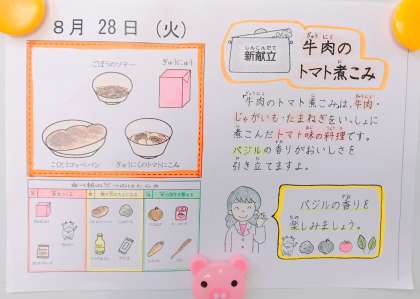 8月 28日 (火)
ごぼうのソテー
ぎゅうにゅう
こくとうコッペパン
ぎゅうにくのトマトにこみ
しんこんだて
新献立
ぎゅうにく
牛肉の
トマト煮こみ
牛肉のトマト煮こみは、牛肉・
じゃがいも・たまねぎをいっしょに
煮こんだトマト味の料理です。
バジルの香りがおいしさを
引き立てますよ。
バジルの香りを
楽しみましょう。